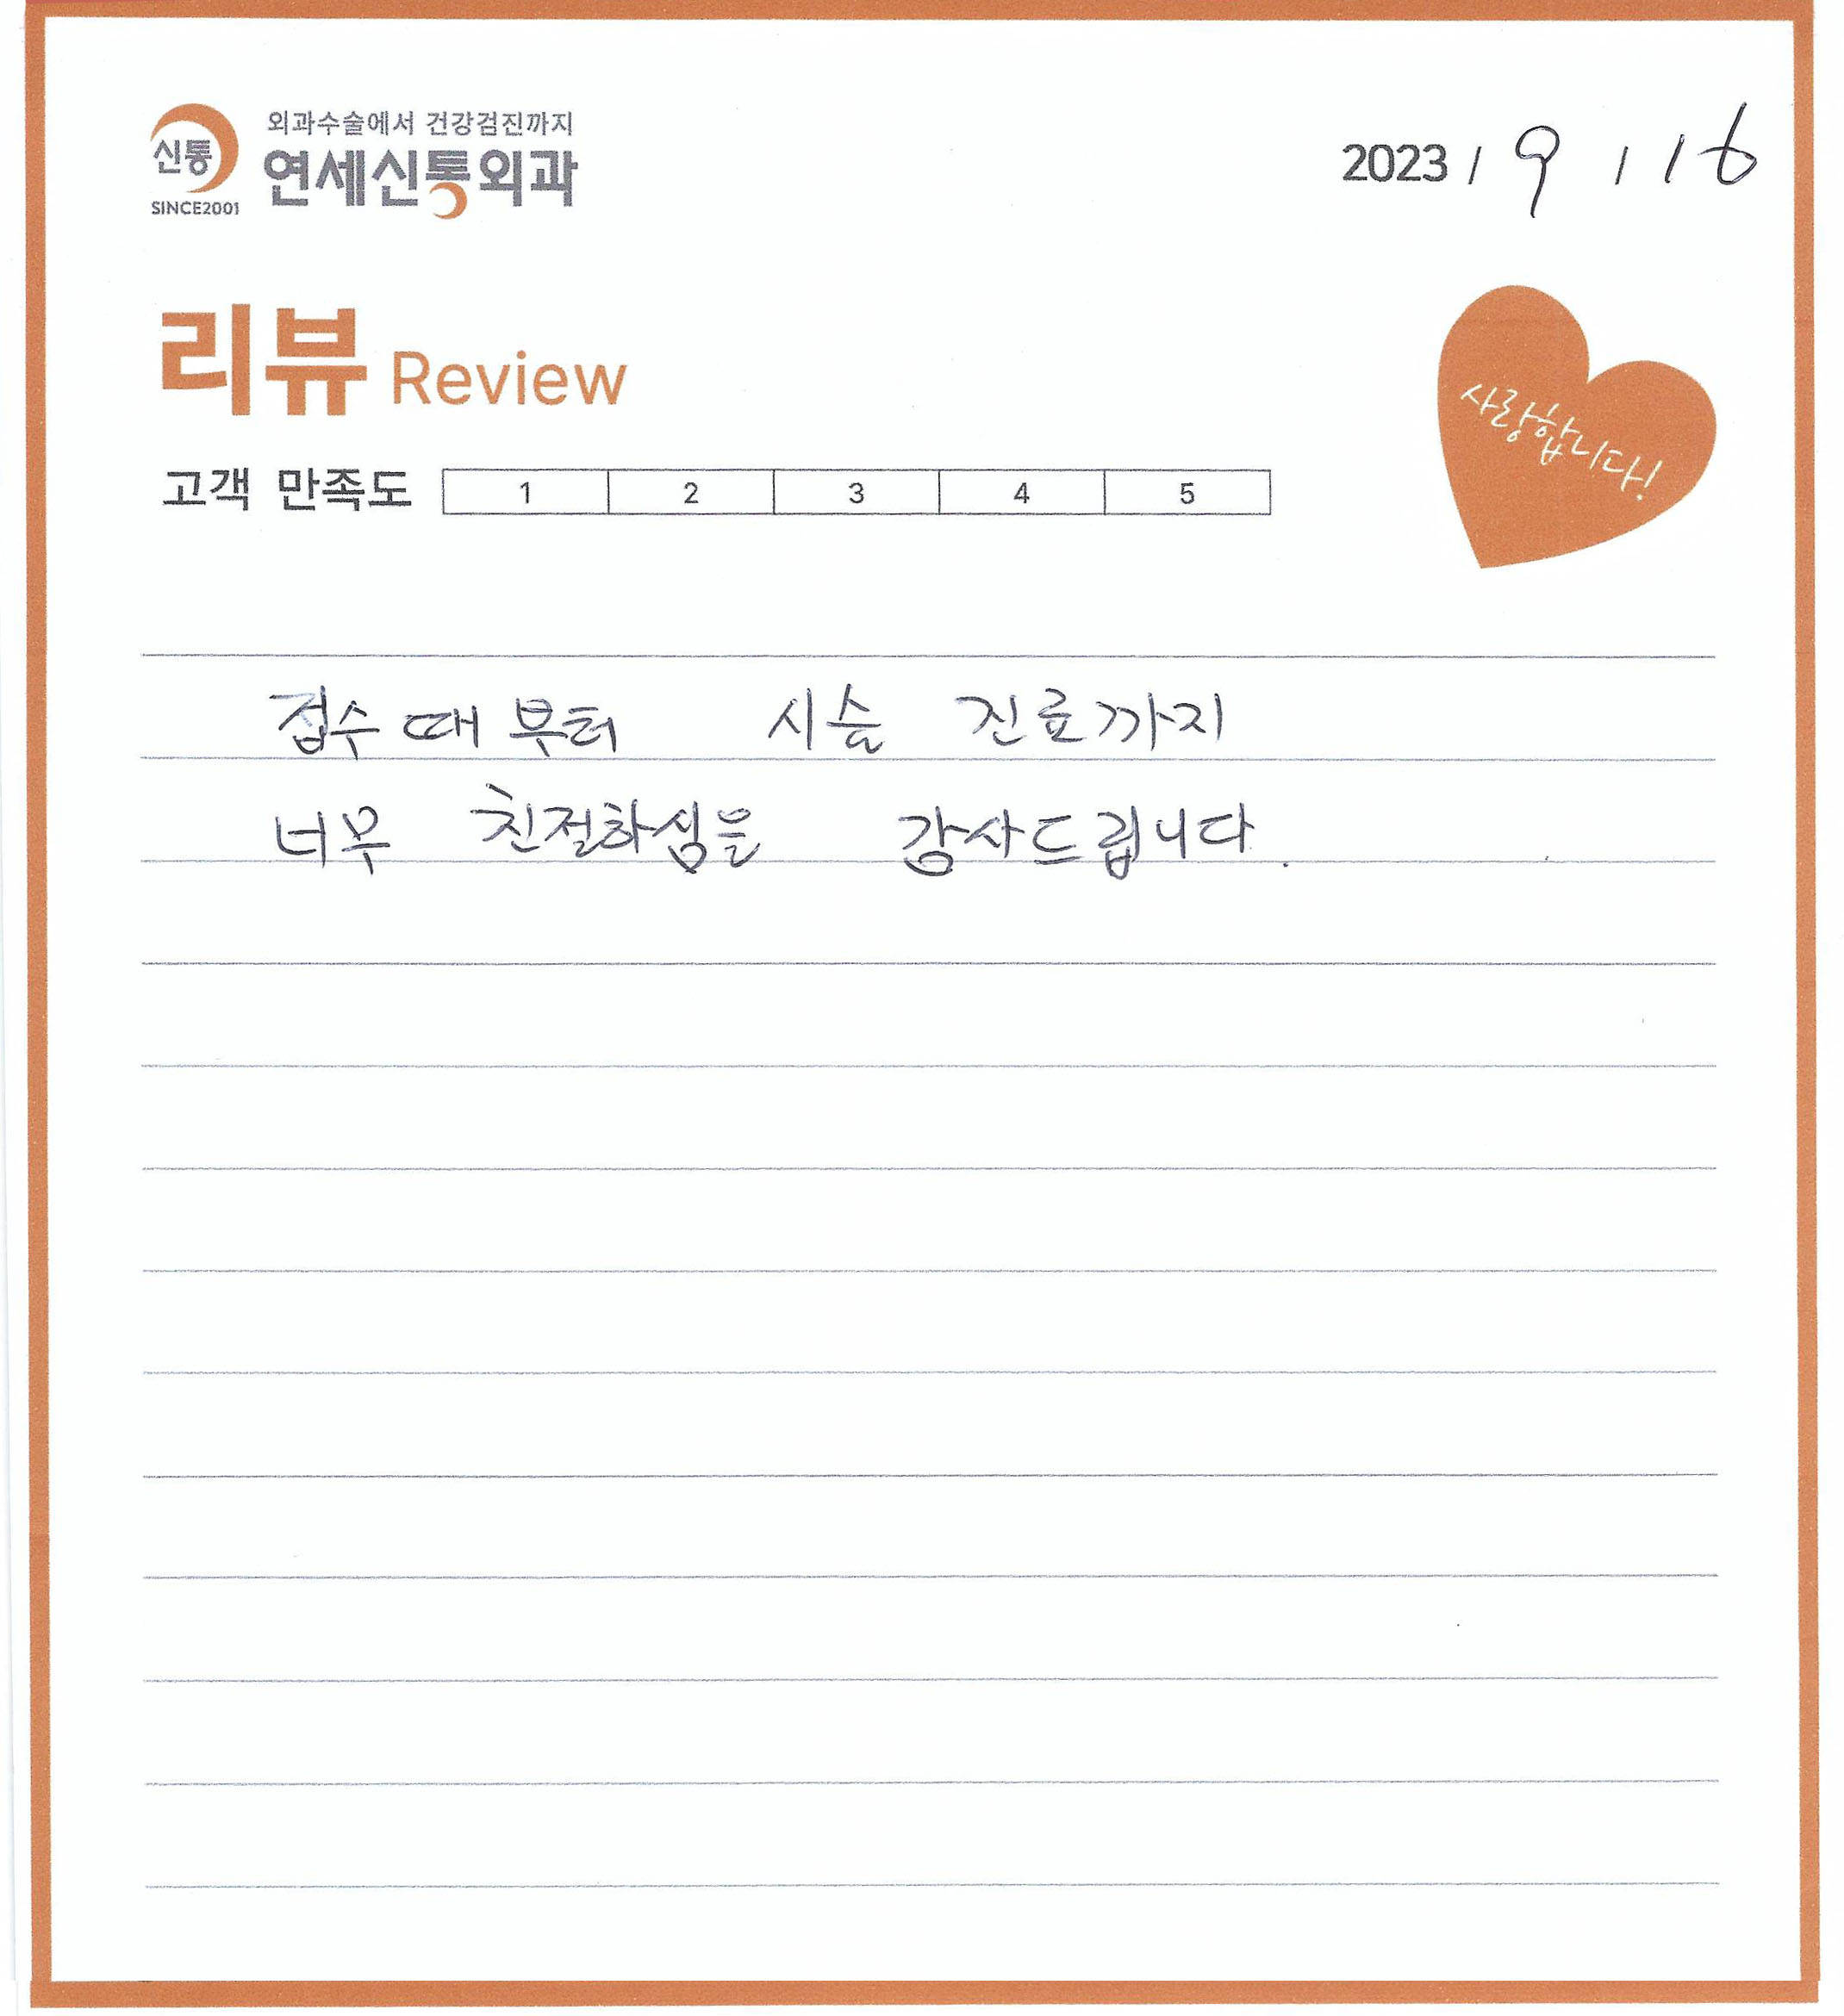 외과수술에서 건강검진까지
신통 연세신통외과
SINCE2001
2023 / 9 / 16
리뷰 Review
사랑합니다!
고객 만족도 1 2 3 4 5
접수 때 부터 시술 진료까지
너무 친절하심을 감사드립니다.